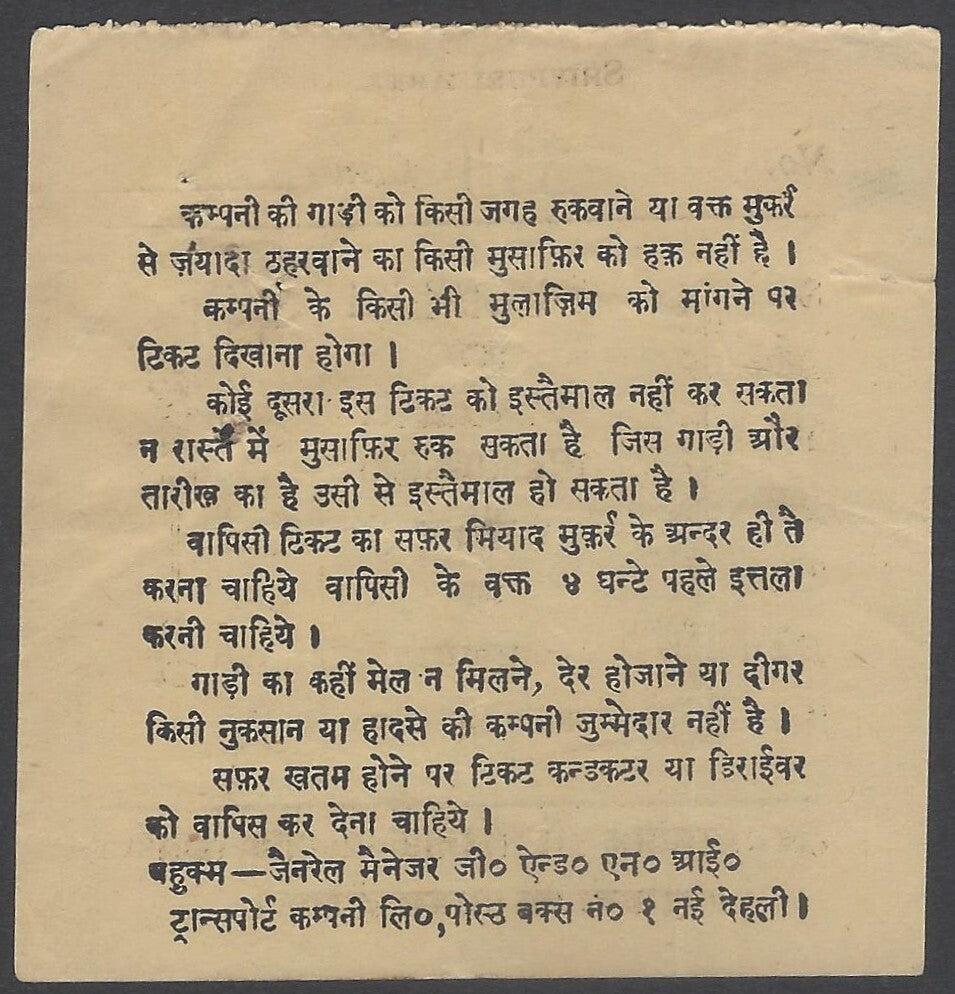 कम्पनी की गाड़ी को किसी जगह रुकवाने या वक्त मुकर्र
से ज़यादा ठहरवाने का किसी मुसाफ़िर को हक़ नहीं है ।
कम्पनी के किसी भी मुलाज़िम को मांगने पर
टिकट दिखाना होगा ।
कोई दूसरा इस टिकट को इस्तैमाल नहीं कर सकता
न रास्ते में मुसाफ़िर रुक सकता है जिस गाड़ी और
तारीख का है उसी से इस्तैमाल हो सकता है ।
वापिसी टिकट का सफ़र मियाद मुकर्र के अन्दर ही तै
करना चाहिये वापिसी के वक्त ४ घन्टे पहले इत्तला
करनी चाहिये ।
गाड़ी का कहीं मेल न मिलने, देर होजाने या दीगर
किसी नुकसान या हादसे की कम्पनी जुम्मेदार नहीं है ।
सफ़र खतम होने पर टिकट कन्डकटर या डिराईवर
को वापिस कर देना चाहिये ।
बहुक्म—जैनरेल मैनेजर जी० ऐन्ड० एन० आई०
ट्रान्सपोर्ट कम्पनी लि०,पोस्ट बक्स नं० १ नई देहली ।